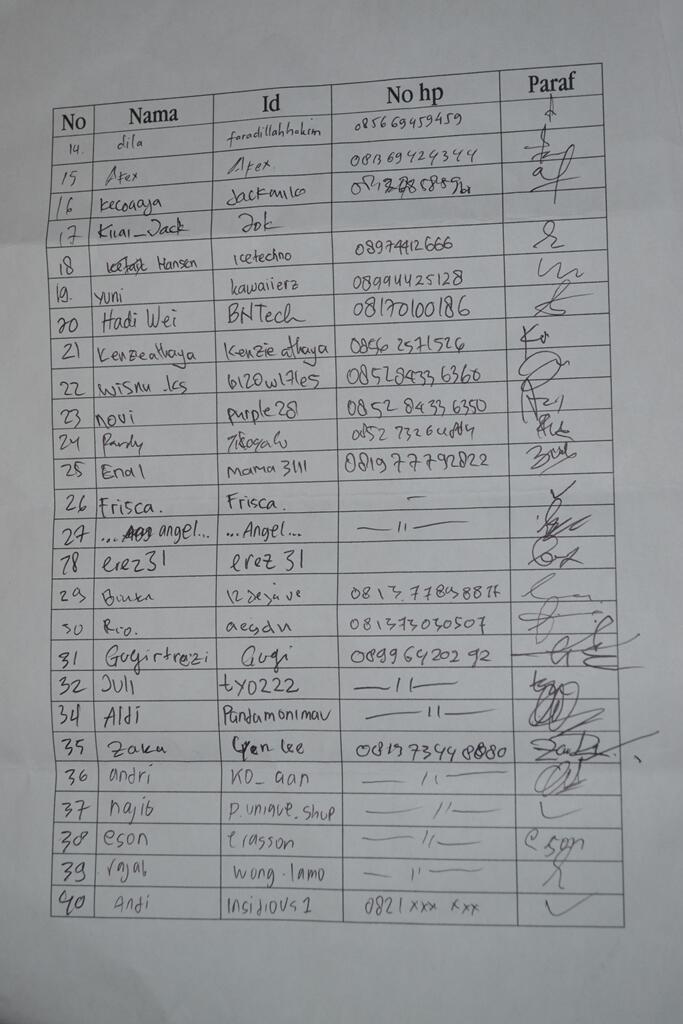 No Nama Id No hp Paraf
14. dila faradillahhakim 085669459459
15 Afex Afex 081369424344
16 kecoagya Jackmilo
17 Kuai_Jack Jok
18 Hansen icetechno 08974412666
19. yuni kawaiierz 08994425128
20 Hadi Wei BNTech 08170100186
21 Kenzieathaya Kenzie athaya 0856 2571526
22 wisnu .ks 6120w17e5 0852 8433 6360
23 novi purple28 0852 8433 6350
24 Randy
25 Enal mama 3111 081977792822
26 Frisca. Frisca. -
27 ... angel... ...Angel... — 11 —
28 erez31 erez 31
29 12 dejavu
30 Rio. aegdn 081373030507
31 Gugirtrezi Gugi 0899 6420292
32 Juli tyo222 — 11 —
34 Aldi Pandamonimav — 11 —
35 Zaka Cyen lee 0819 7344 8880
36 andri KO_aan — 11 —
37 najib p.unique.shop — 11 —
38 eson erasson — 11 — eson
39 rajab wong.lamo — 11 —
40 Andi Insidious1 0821 xxx xxx